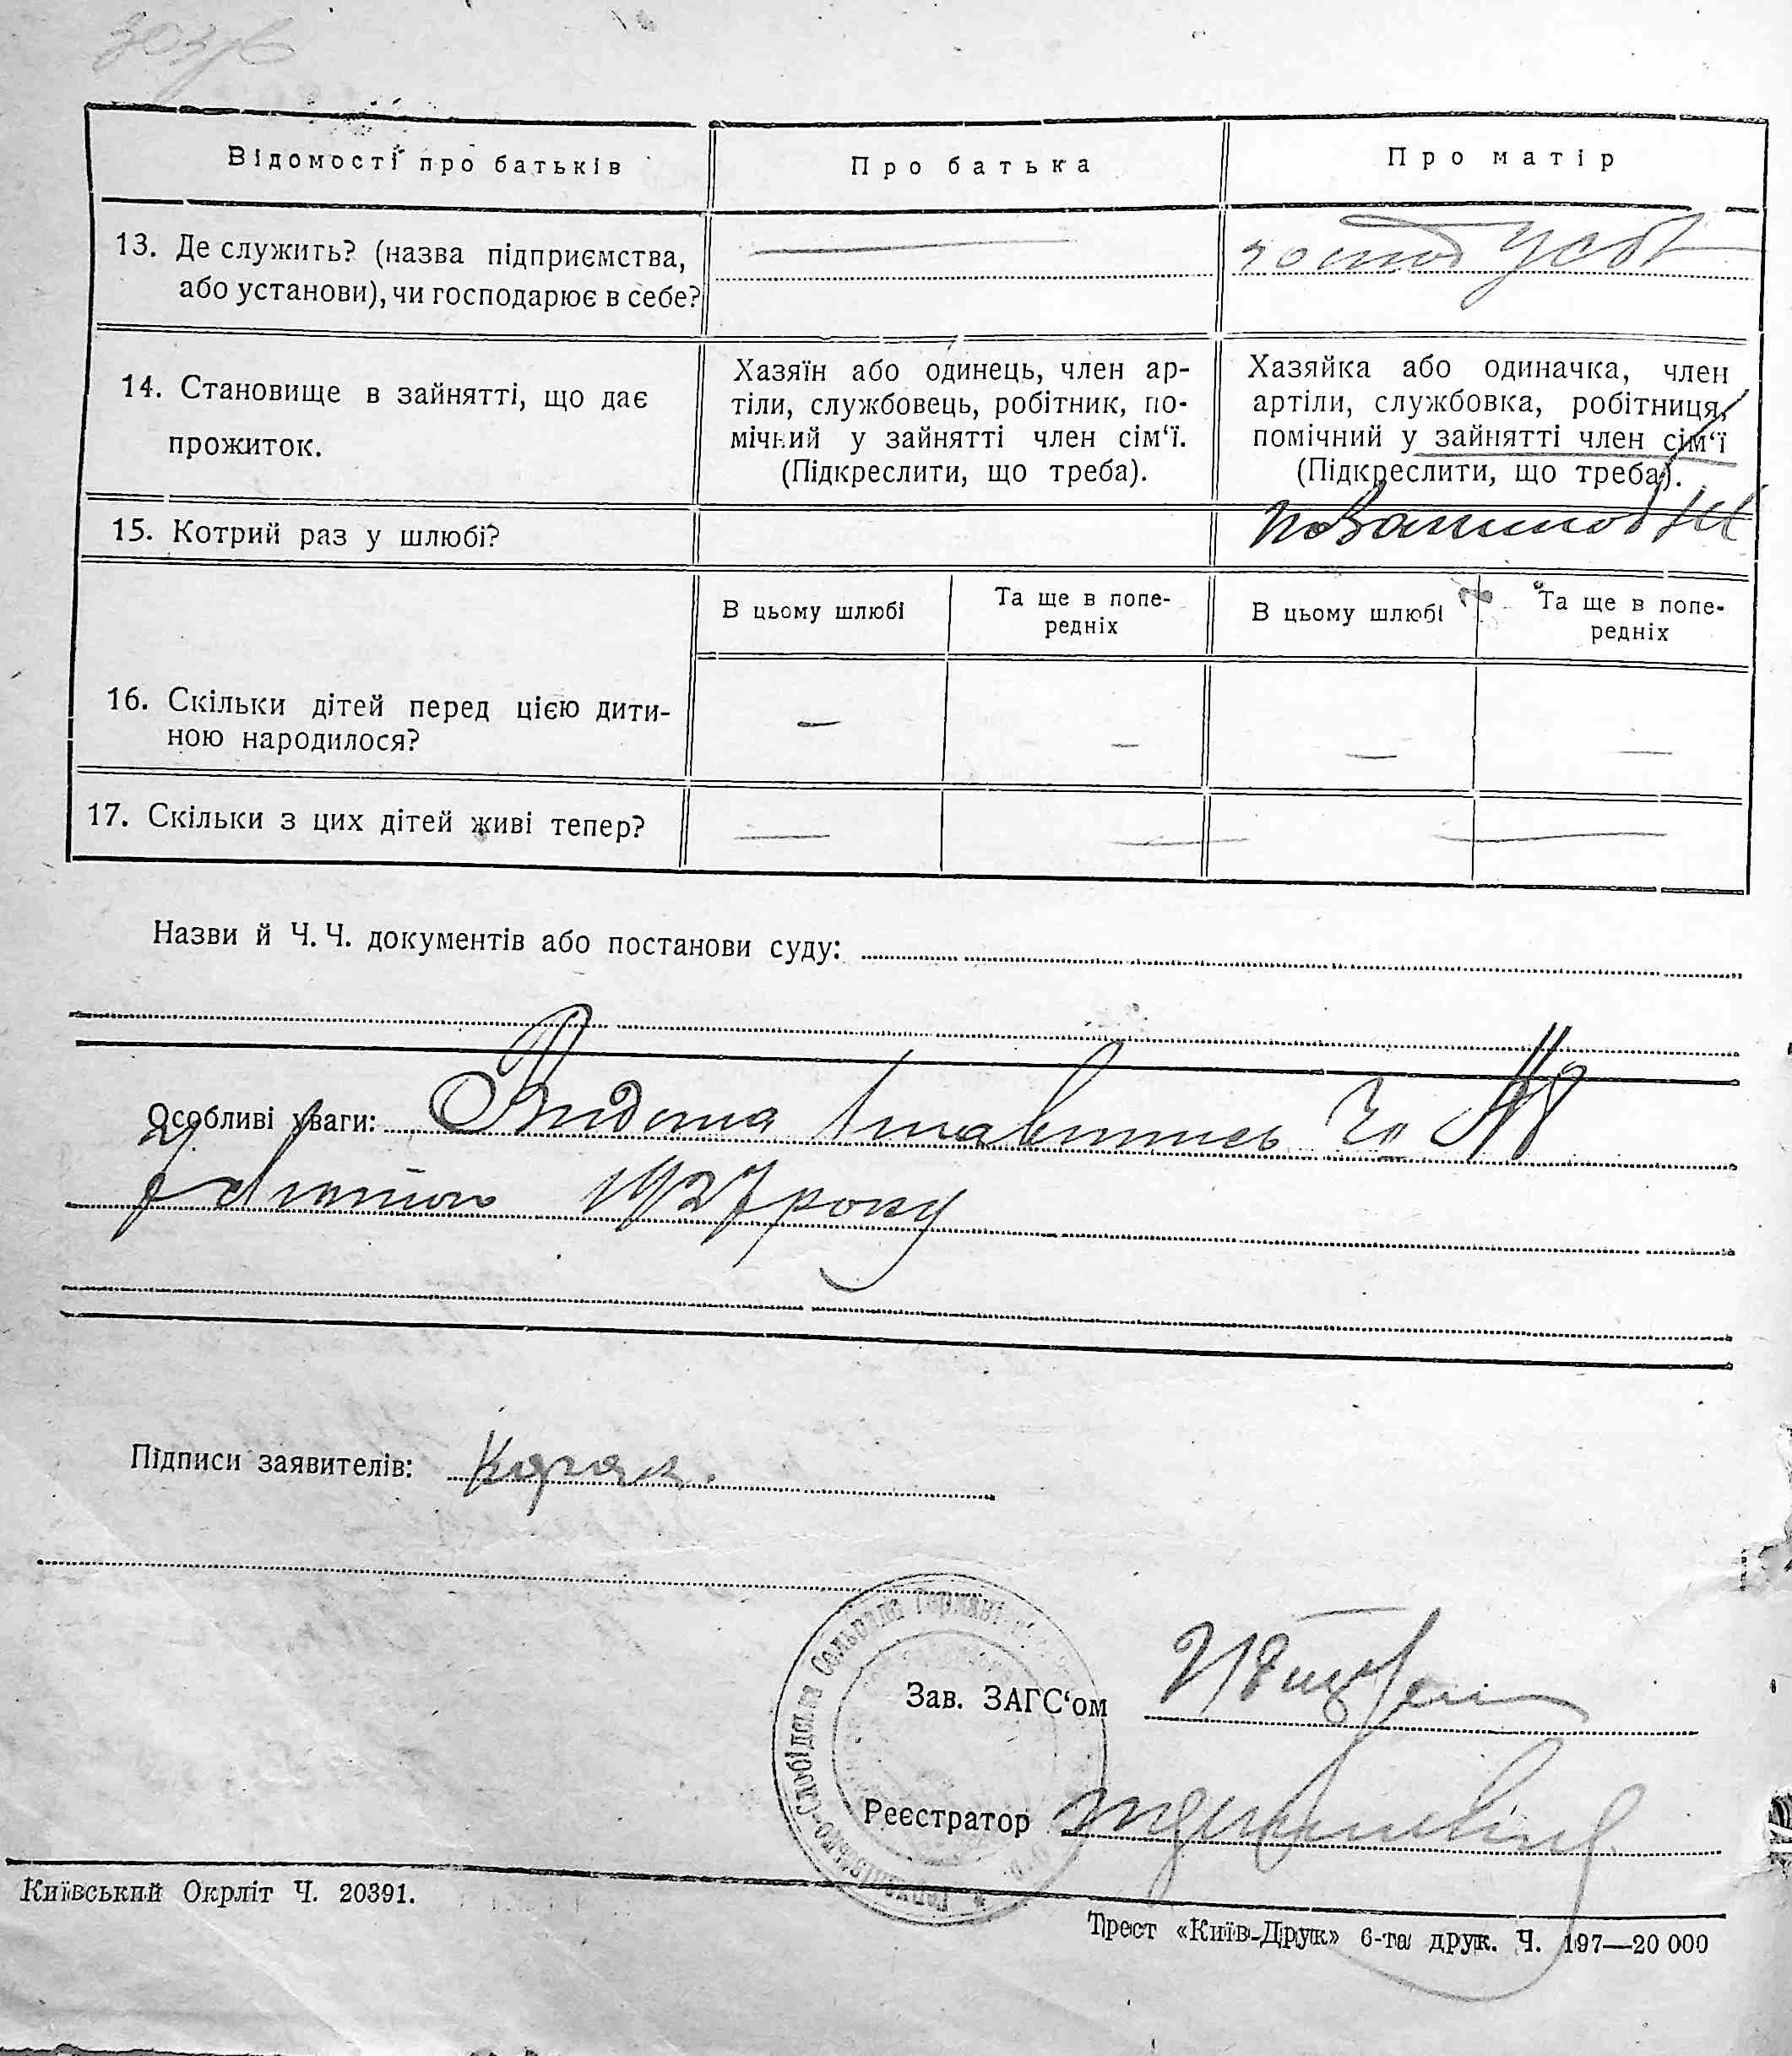 Відомості про батьків
Про батька
Про матір
13. Де служить? (назва підприємства,
або установи), чи господарює в себе?
господ у себе
14. Становище в зайнятті, що дає
прожиток.
Хазяїн або одинець, член ар-
тіли, службовець, робітник, по-
мічний у зайнятті член сім‘ї.
(Підкреслити, що треба).
Хазяйка або одиначка, член
артіли, службовка, робітниця,
помічний у зайнятті член сім‘ї
(Підкреслити, що треба).
15. Котрий раз у шлюбі?
В цьому шлюбі
Та ще в попе-
редніх
В цьому шлюбі
Та ще в попе-
редніх
16. Скільки дітей перед цією дити-
ною народилося?
—
—
—
—
17. Скільки з цих дітей живі тепер?
Назви й Ч. Ч. документів або постанови суду:
Особливі уваги: Видана
1927 року
Підписи заявителів:
Зав. ЗАГС‘ом
Реєстратор
Київський Окрліт Ч. 20391.
Трест «Київ-Друк» 6-та друк. Ч. 197—20 000